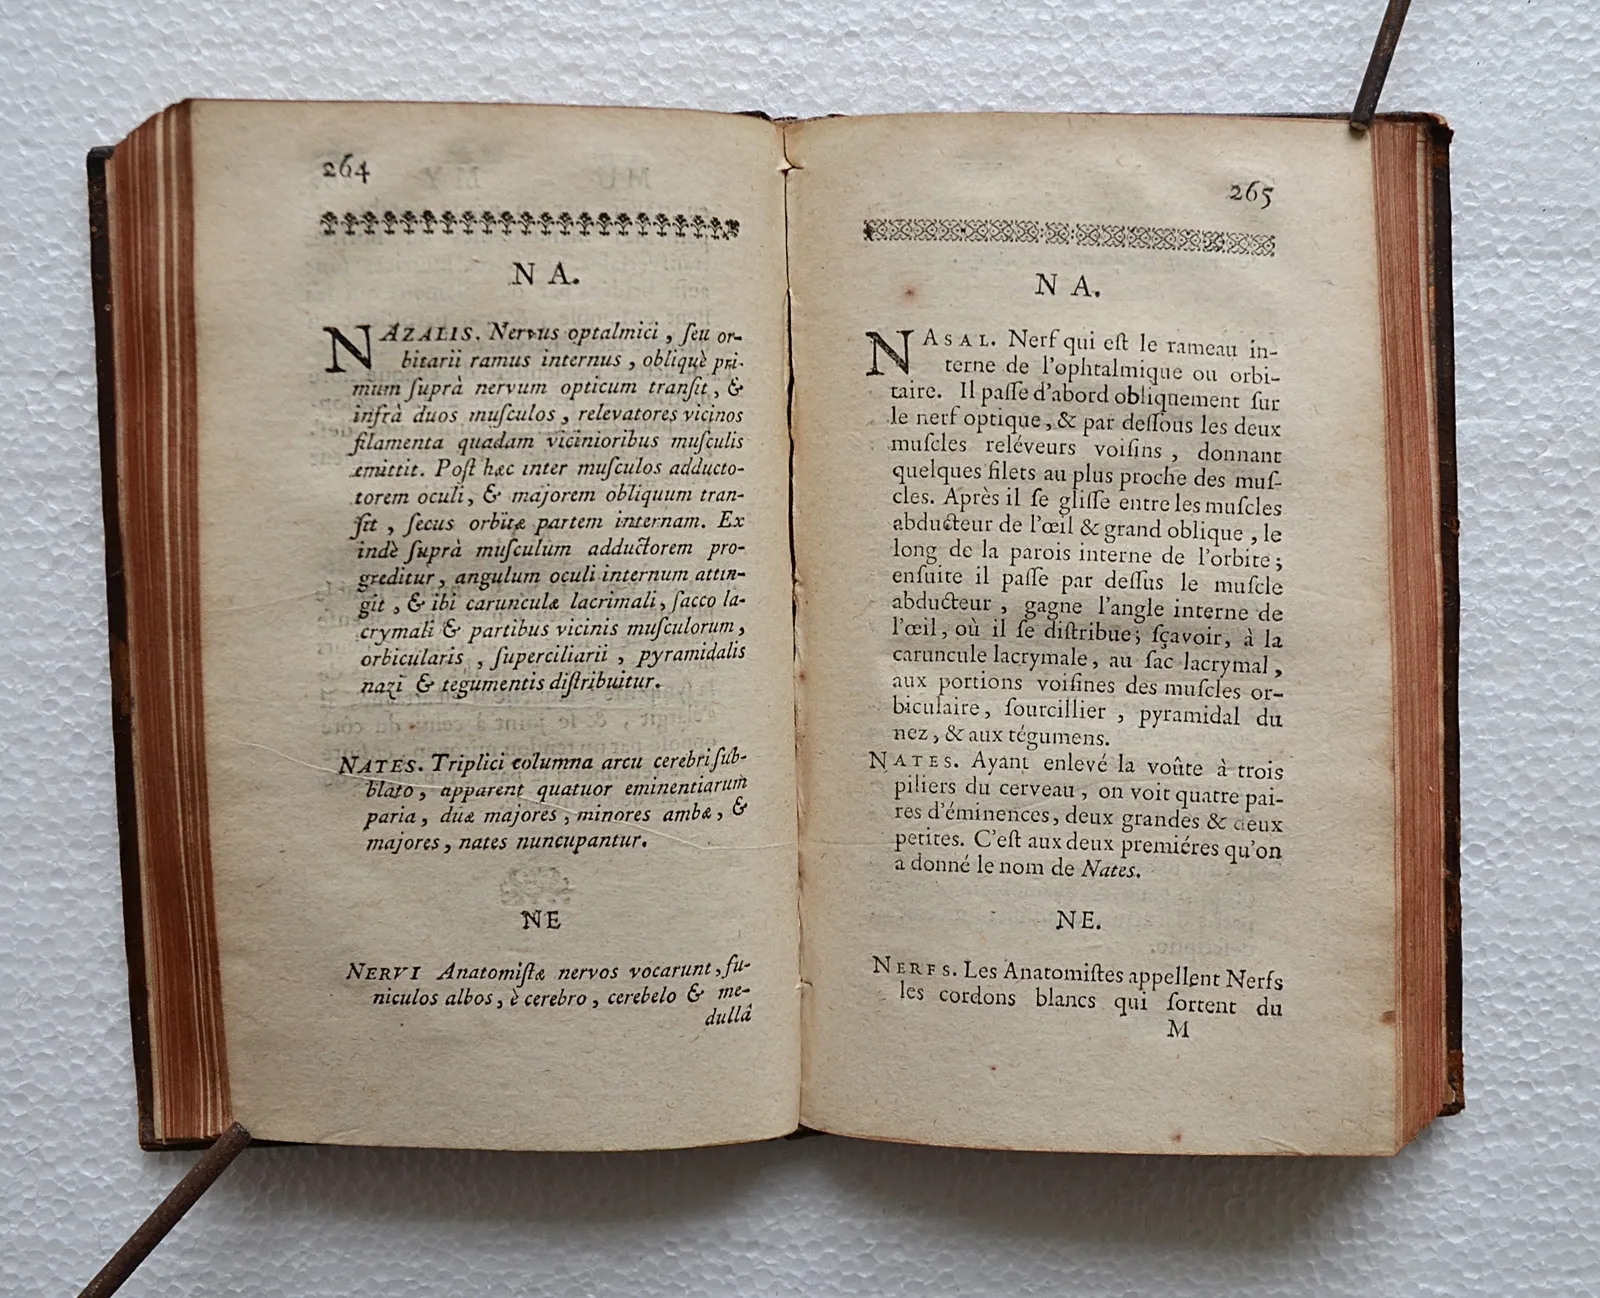 264
N A.
NAZALIS. Nervus optalmici, ſeu or-
bitarii ramus internus, obliquè pri-
mùm ſuprà nervum opticum tranſit, &
infrà duos muſculos, relevatores vicinos
filamenta quædam vicinioribus muſculis
emittit. Poſt hæc inter muſculos adducto-
torem oculi, & majorem obliquum tran-
ſit, ſecus orbitæ partem internam. Ex
indè ſuprà muſculum adductorem pro-
greditur, angulum oculi internum attin-
git, & ibi carunculæ lacrimali, ſacco la-
crymali & partibus vicinis muſculorum,
orbicularis, ſuperciliarii, pyramidalis
nazi & tegumentis diſtribuitur.
NATES. Triplici columna arcu cerebri ſub-
blato, apparent quatuor eminentiarum
paria, duæ majores, minores ambæ, &
majores, nates nuncupantur.
NE
NERVI Anatomiſtæ nervos vocarunt, fu-
niculos albos, è cerebro, cerebelo & me-
dullâ
265
N A.
NASAL. Nerf qui eſt le rameau in-
terne de l'ophtalmique ou orbi-
taire. Il paſſe d'abord obliquement ſur
le nerf optique, & par deſſous les deux
muſcles reléveurs voiſins, donnant
quelques filets au plus proche des muſ-
cles. Après il ſe gliſſe entre les muſcles
abducteur de l'œil & grand oblique, le
long de la parois interne de l'orbite;
enſuite il paſſe par deſſus le muſcle
abducteur, gagne l'angle interne de
l'œil, où il ſe diſtribue; ſçavoir, à la
caruncule lacrymale, au ſac lacrymal,
aux portions voiſines des muſcles or-
biculaire, ſourcillier, pyramidal du
nez, & aux tégumens.
NATES. Ayant enlevé la voûte à trois
piliers du cerveau, on voit quatre pai-
res d'éminences, deux grandes & deux
petites. C'eſt aux deux premiéres qu'on
a donné le nom de Nates.
NE.
NERFS. Les Anatomiſtes appellent Nerfs
les cordons blancs qui ſortent du
M